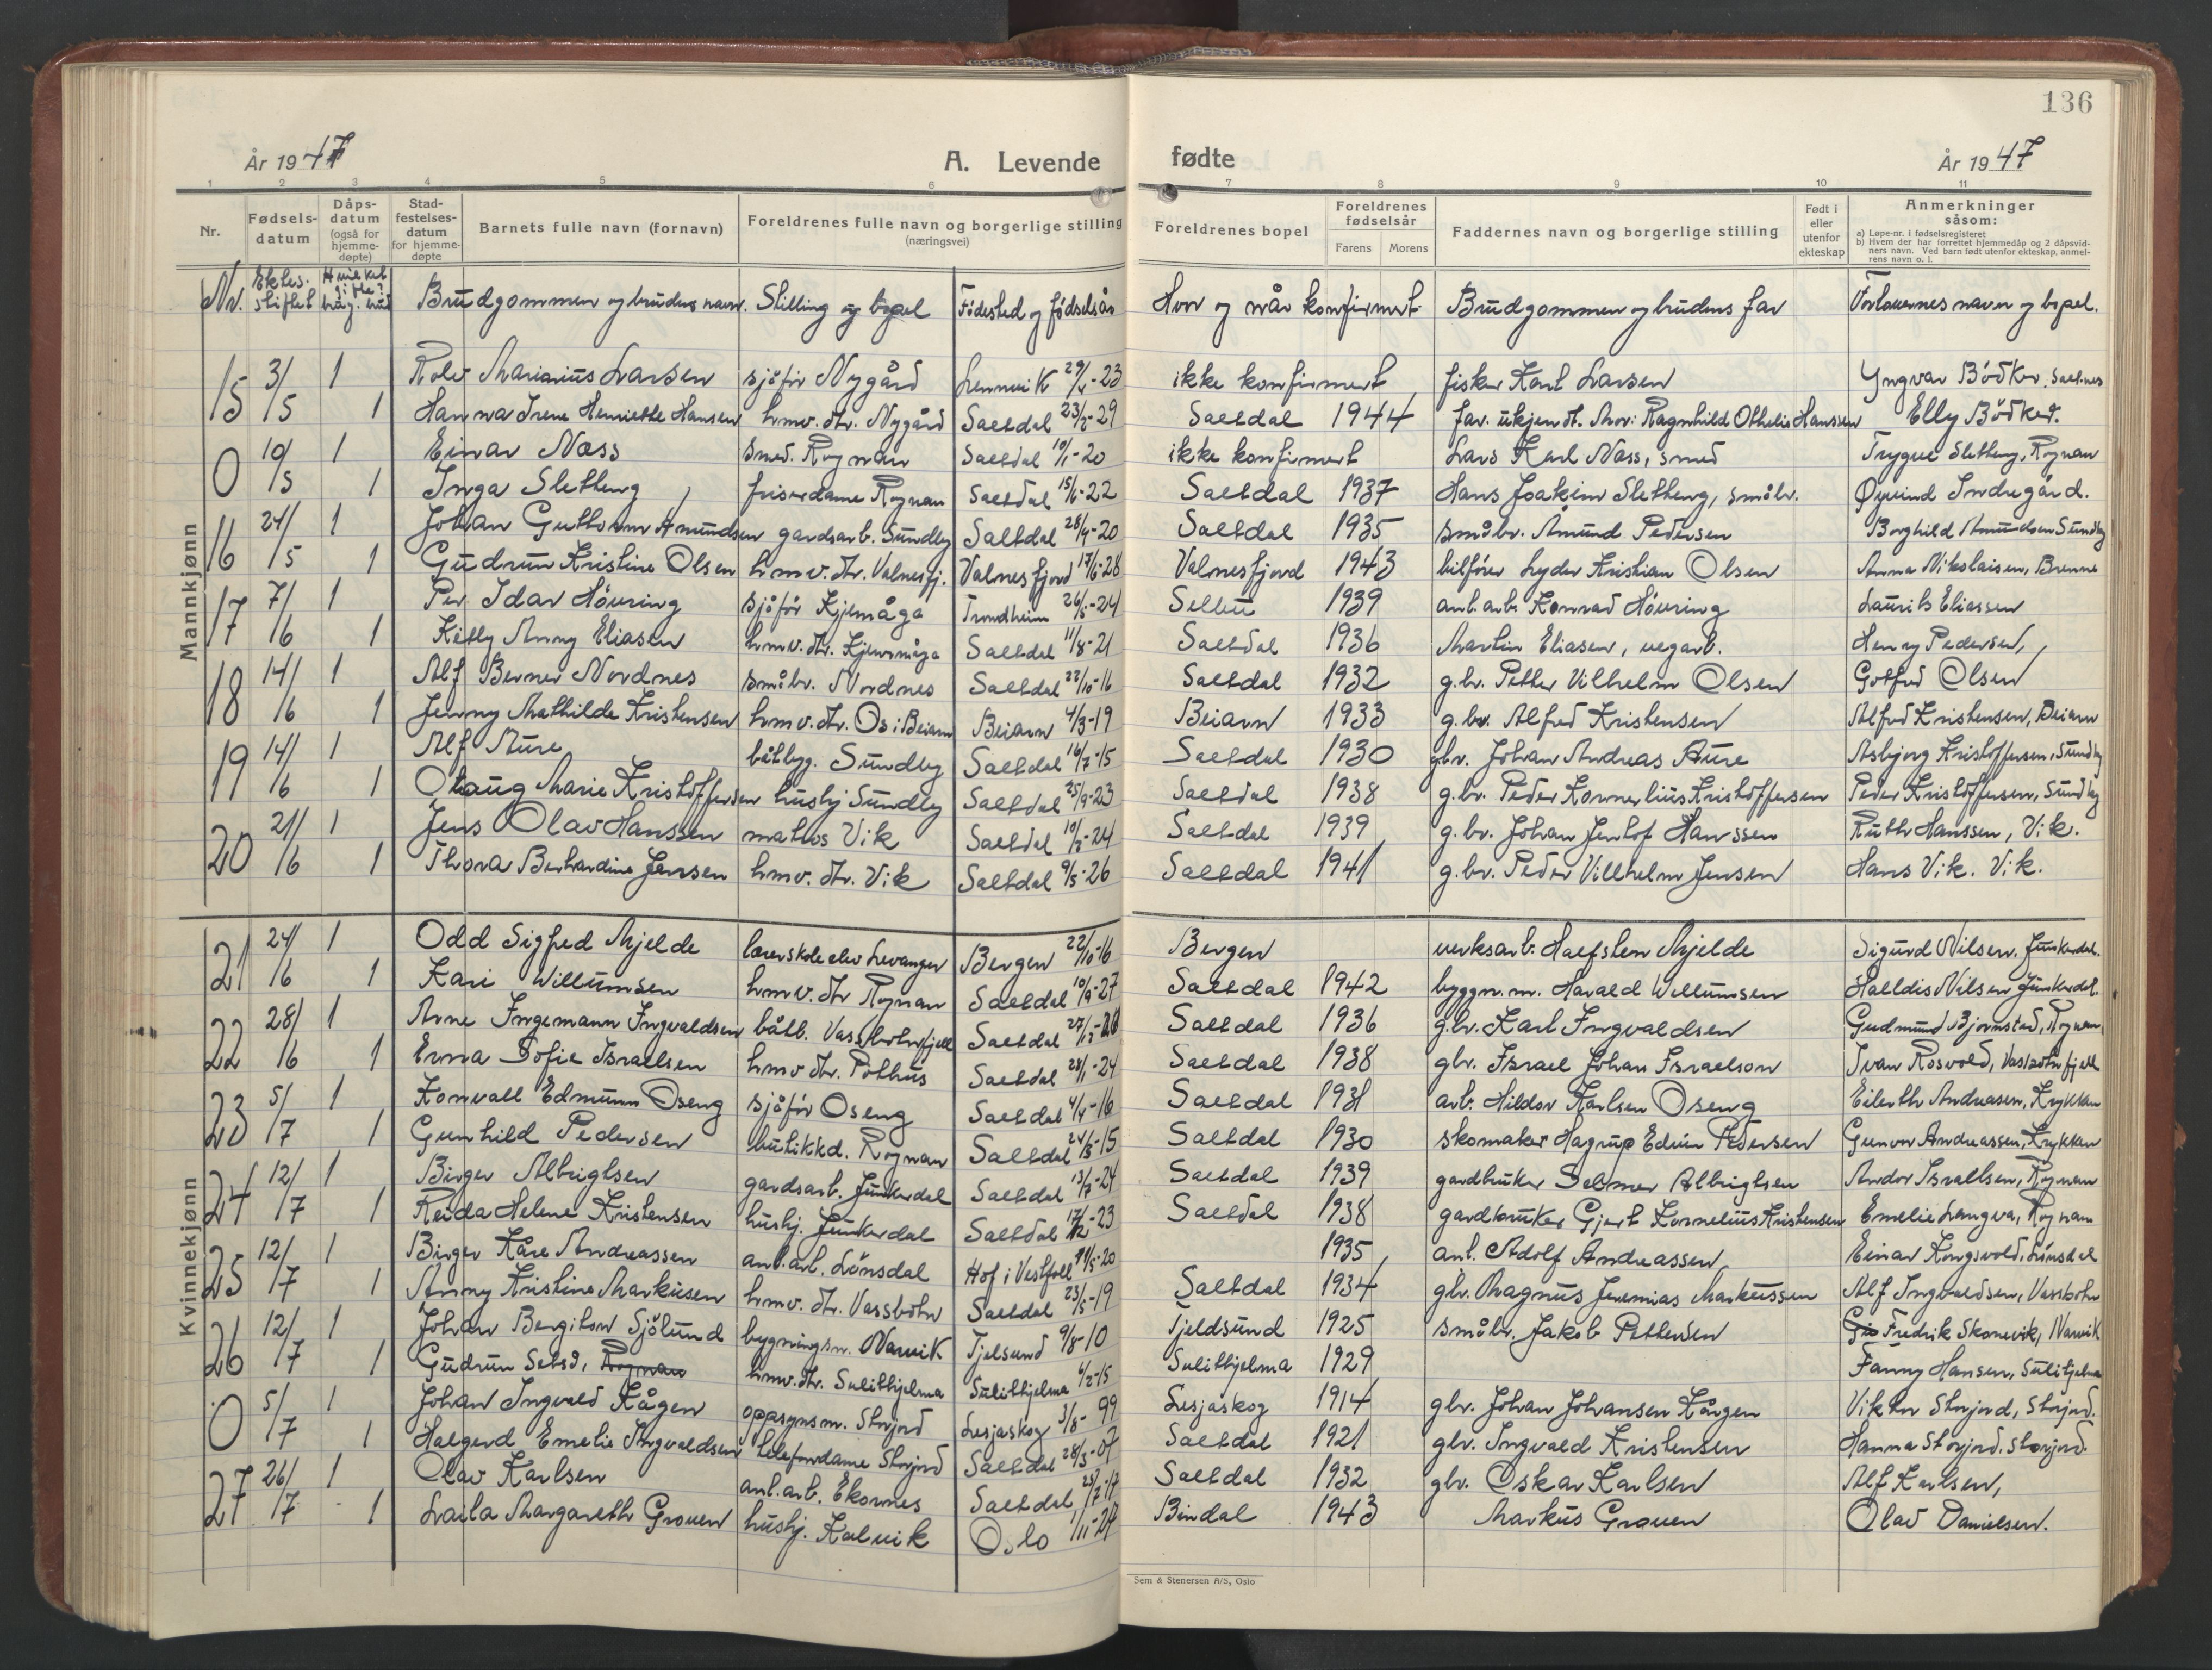 136
År 1947 A. Levende fødte År 1947
1 2 3 4 5 6 7 8 9 10 11
Nr. Fødselsdatum Dåpsdatum (også for hjemmedøpte) Stadfestelsesdatum for hjemmedøpte Barnets fulle navn (fornavn) Foreldrenes fulle navn og borgerlige stilling (næringsvei) Foreldrenes bopel Foreldrenes fødselsår Farens Morens Faddernes navn og borgerlige stilling Født i eller utenfor ekteskap Anmerkninger såsom: a) Løpe-nr. i fødselsregisteret b) Hvem der har forrettet hjemmedåp og 2 dåpsvidners navn. Ved barn født utenfor ekteskap, anmelrens navn o. l.
Nr. Brudgommen og brudens navn. Stilling og bopel Fødested og fødselsår Hvor og når konfirmert Brudgommen og brudens far Forlovernes navn og bopel.
Mannkjønn
15 3/5 1 Rolv Marianus Larsen sjåfør Nygård Lennvik 29/4-23 ikke konfirmert fisker Karl Larsen Yngvar Bödker, Saltnes
1 Hanna Irene Henriette Hansen hmv. dtr. Nygård Saltdal 23/2-29 Saltdal 1944 far. ukjendt. Mor: Ragnhild Othelie Hanssen Elly Bödker.
0 10/5 1 Einar Næss smed. Rognan Saltdal 10/1-20 ikke konfirmert Lars Karl Næss, smed Trygve Sletteng, Rognan
1 Inga Sletteng friserdame Rognan Saltdal 15/6-22 Saltdal 1937 Hans Joakim Sletteng, småbr. Øyvind Indregård.
16 24/5 1 Johan Guttorm Amundsen gardsarb. Sundby Saltdal 28/4-20 Saltdal 1935 småbr. Amund Pedersen Borghild Amundsen Sundby
1 Gudrun Kristine Olsen hmv. dtr. Valnesfj. Valnesfjord 17/6-28 Valnesfjord 1943 bilfører Lyder Kristian Olsen Anna Nikolaisen, Brenne
17 7/6 1 Per Idar Høvring sjåfør Kjemåga Trondheim 26/5-24 Selbu 1939 anl. arb. Konrad Høvring Laurits Eliassen
1 Kitty Anny Eliasen hmv. dtr. Kjemåga Saltdal 11/8-21 Saltdal 1936 Martin Eliasen, vegarb. Henny Pedersen,
18 14/6 1 Alf Berner Nordnes småbr. Nordnes Saltdal 22/10-16 Saltdal 1932 g.br. Petter Vilhelm Olsen Gotfred Olsen
1 Jenny Mathilde Kristensen hmv. dtr. Os i Beiarn Beiarn 4/3-19 Beiarn 1933 g.br. Alfred Kristensen Alfred Kristensen, Beiarn
19 14/6 1 Alf Aure båtbyg. Sundby Saltdal 16/7-15 Saltdal 1930 gbr. Johan Andreas Aure Asbjørg Kristoffersen, Sundby
1 Olaug Marie Kristoffersen hushj Sundby Saltdal 25/9-23 Saltdal 1938 g.br. Peder Kornelius Kristoffersen Peder Kristoffersen, Sundby
20 21/6 1 Jens Olav Hanssen matros Vik Saltdal 10/3-24 Saltdal 1939 g.br. Johan Jentof Hanssen Ruth Hanssen, Vik.
1 Thora Berhardine Jensen hmv. dtr. Vik Saltdal 9/5-26 Saltdal 1941 g.br. Peder Villhelm Jensen Hans Vik. Vik.
Kvinnekjønn
21 24/6 1 Odd Sigfred Mjelde lærerskole elev Levanger Bergen 22/10-16 Bergen verksarb. Halfsten Mjelde Sigurd Nilsen, Junkerdal.
1 Kari Willumsen hmv. dtr Rognan Saltdal 10/9-27 Saltdal 1942 byggm. m. Harald Willumsen Halldis Nilsen Junkerdal.
22 28/6 1 Arne Ingemann Ingvaldsen båtb. Vassbotnfjell Saltdal Saltdal 1936 g.br. Karl Ingvaldsen Gudmund Bjørnstad, Rognan
1 Erna Sofie Israelsen hmv dtr. Pothus Saltdal 28/1-24 Saltdal 1938 gbr. Israel Johan Israelson Ivar Rosvold, Vassbotnfjell
23 5/7 1 Konrall Edmunn Oseng sjåfør Oseng Saltdal 4/4-16 Saltdal 1931 arb. Hildor Karlsen Oseng Eilerth Andreasen, Krykkan
1 Gunhild Pedersen butikkd. Rognan Saltdal 24/5-15 Saltdal 1930 skomaker Hagrup Edvin Pedersen Gunvor Andreassen, Krykkan
24 12/7 1 Birger Albrigtsen gardsarb. Junkerdal Saltdal 13/7-24 Saltdal 1939 gardbruker Selmer Albrigtsen Andor Israelsen, Rognan
1 Reida Helene Kristensen hushj. Junkerdal Saltdal 17/12-23 Saltdal 1938 gardbruker Gjert Kornelius Kristensen Emelie Lengva, Rognan
25 12/7 1 Birger Kåre Andreassen anl. arb. Lönsdal Hof i Vestfoll 11/5-20 1935 anl. Adolf Andreassen Einar Kongsvold, Lönsdal
1 Anny Kristine Markusen hmv. dtr. Vassbotn Saltdal 23/5-19 Saltdal 1934 gbr. Magnus Jeremias Markussen Alf Ingvaldsen, Vassbotn
26 12/7 1 Johan Bergiton Sjölund bygningsn. Narvik Tjelsund 9/8-10 Tjeldsund 1925 småbr. Jakob Pettersen Fredrik Skonevik, Narvik
1 Gudrun Setså, Rognan hmv. dtr. Sulithjelma Sulithjelma 6/2-15 Sulithjelma 1929 Fanny Hansen, Sulitjelma
0 5/7 1 Johan Ingvald Kågen oppsynsm. Storjord Lesjaskog 3/8-99 Lesjaskog 1914 gbr. Johan Johansen Kågen Viktor Storjord, Storjord.
1 Halgerd Emelie Ingvaldsen telefondame Storjord Saltdal 28/3-07 Saltdal 1921 gbr. Ingvald Kristensen Hanna Storjord. Storjord.
27 26/7 1 Olav Karlsen anl. arb. Ekornes Saltdal 25/7-17 Saltdal 1932 gbr. Oskar Karlsen Alf Karlsen,
1 Laila Margareth Groven hushj. Kalvik Oslo 1/11-27 Bindal 1943 Markus Groven Olav Danielsen.
Sem & Stenersen A/S, Oslo